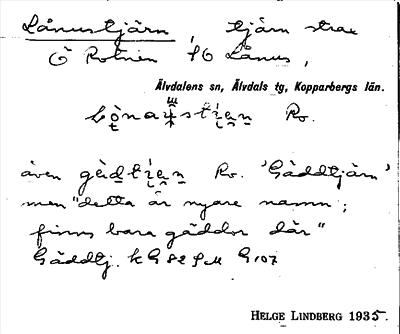 Lånustjärn, tjärn strax
Ö Rotnen SO Lånus,
Älvdalens sn, Älvdals tg, Kopparbergs län.
Ro.
även Ro. 'Gäddtjärn'
men "detta är nyare namn;
finns bara gäddor där"
Gäddtj. k G 82 G 107
HELGE LINDBERG 1935.